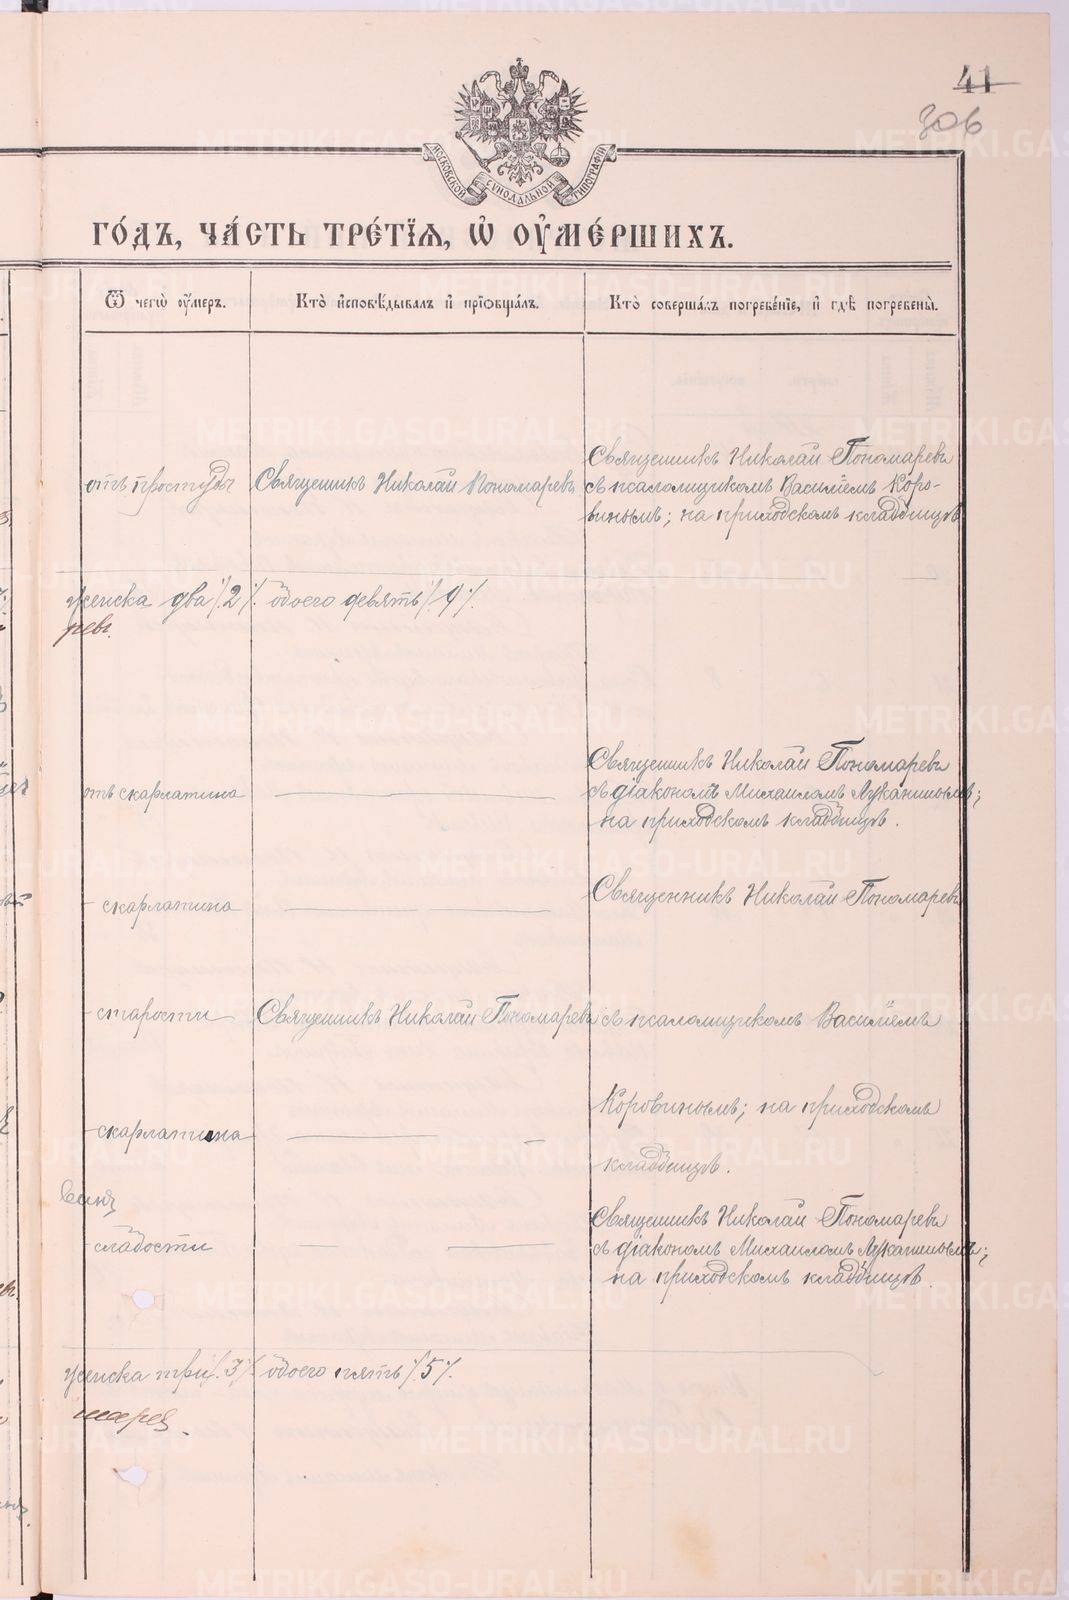 41
306
МОСКОВСКОЙ СѴНОДАЛЬНОЙ ТИПОГРАФІИ
ГО́ДЪ, ЧА́СТЬ ТРЕ́ТІЯ, Ѡ ОУ҆МЕ́РШИХЪ.
Ѿ чегѡ̀ оу҆́меръ.
Кто̀ и҆сповѣ́дывалъ и҆ прїѡбща́лъ.
Кто̀ соверша́лъ погребе́нїе, и҆ гдѣ̀ погребены̀.
отъ простуды
Священникъ Николай Пономаревъ
Священникъ Николай Пономаревъ
съ псаломщикомъ Василіемъ Коро-
винымъ; на приходскомъ кладбищѣ
женска два /2/. обоего девять /9/.
ревъ.
отъ скарлатина
Священникъ Николай Пономаревъ
съ діакономъ Михаиломъ Луканинымъ;
на приходскомъ кладбищѣ.
скарлатина
Священникъ Николай Пономаревъ
старости
Священникъ Николай Пономаревъ
съ псаломщикомъ Василіемъ
скарлатина
Коровинымъ; на приходскомъ
кладбищѣ.
слабости
Священникъ Николай Пономаревъ
съ діакономъ Михаиломъ Луканинымъ;
на приходскомъ кладбищѣ.
женска три /3/. обоего пять /5/.
марев
METRIKI.GASO-URAL.RU